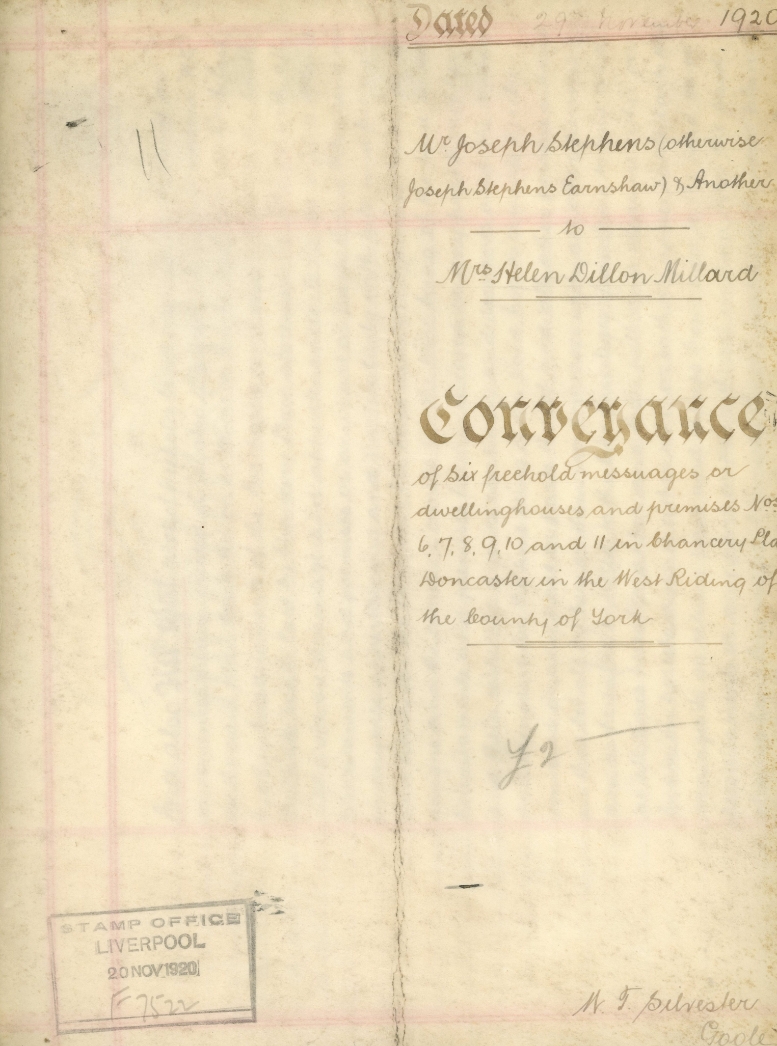 Dated 29th November 1920
11
Mr. Joseph Stephens (otherwise
Joseph Stephens Earnshaw) & Another
to
Mrs Helen Dillon Millard
Conveyance
of six freehold messuages or
dwellinghouses and premises Nos
6, 7, 8, 9, 10 and 11 in Chancery Pla
Doncaster in the West Riding of
the County of York
STAMP OFFICE
LIVERPOOL
20 NOV 1920
F 7522
W. T. Silvester
Goole